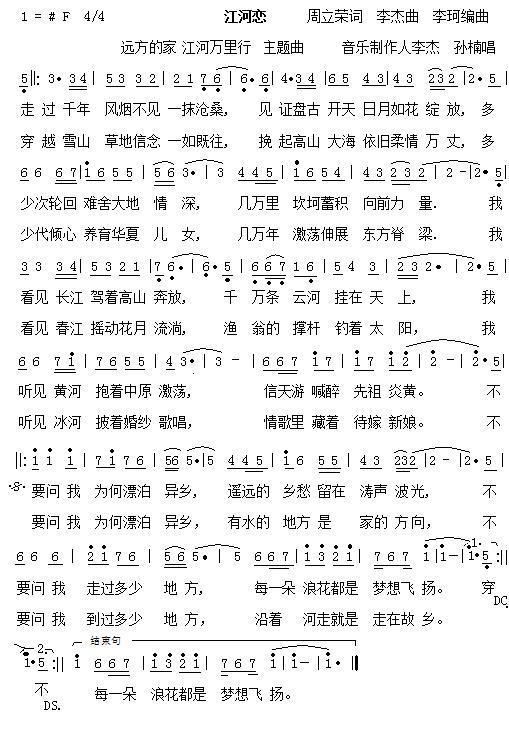 1 = # F 4/4 江河恋 周立荣词 李杰曲 李珂编曲
远方的家 江河万里行 主题曲 音乐制作人李杰 孙楠唱
5 ‖: 3· 3 4 | 5 3 3 2 | 2 1 7 6 | 6· 6 | 4· 3 4 | 6 5 4 3 | 4 3 2 3 2 | 2· 5 |
走 过 千年 风烟不见 一抹沧桑, 见 证盘古 开天 日月如花 绽 放, 多
穿 越 雪山 草地信念 一如既往, 挽 起高山 大海 依旧柔情 万 丈, 多
6 6 6 7 | 1 6 5 5 | 5 6 3· | 3 4 4 5 | 1 6 5 4 | 4 3 2 3 2 | 2 - | 2· 5 |
少次轮回 难舍大地 情 深, 几万里 坎坷蓄积 向前力 量. 我
少代倾心 养育华夏 儿 女, 几万年 激荡伸展 东方脊 梁. 我
3 3 3 4 | 5 3 2 1 | 7 6· | 6· 5 | 6 6 7 | 1 6 | 5 4 3 | 2 3 2 | 2· 5 |
看见 长江 驾着高山 奔放, 千 万条 云河 挂在 天 上, 我
看见 春江 摇动花月 流淌, 渔 翁的 撑杆 钓着 太 阳, 我
6 6 7 1 | 7 6 5 5 | 4 3· | 3 - | 6 6 7 | 1 7 | 1 7 1 2 | 2 - | 2· 5 |
听见 黄河 抱着中原 激荡, 信天游 喊醉 先祖 炎黄。 不
听见 冰河 披着婚纱 歌唱, 情歌里 藏着 待嫁 新娘。 不
‖: 1 1 1 | 7 1 7 6 | 5 6 5· | 5 4 4 5 | 1 6 5 5 | 4 3 2 3 2 | 2 - | 2· 5 |
要问 我 为何漂泊 异乡, 遥远的 乡愁 留在 涛声 波光, 不
要问 我 为何漂泊 异乡, 有水的 地方 是 家的 方向, 不
6 6 6 | 2 1 7 6 | 5 6 5· | 5· 5 | 6 6 7 | 1 3 2 1 | 7 6 7 | 1 | 1 - | 1· 5 :‖
要问 我 走过多少 地 方, 每一朵 浪花都是 梦想飞 扬。 穿
要问 我 到过多少 地 方, 沿着 河走就是 走在故 乡。 DC.
2. 结束句
1· 5 :‖ 1 6 6 7 | 1 3 2 1 | 7 6 7 | 1 | 1 - | 1· ‖
不 每一朵 浪花都是 梦想飞 扬。
DS.